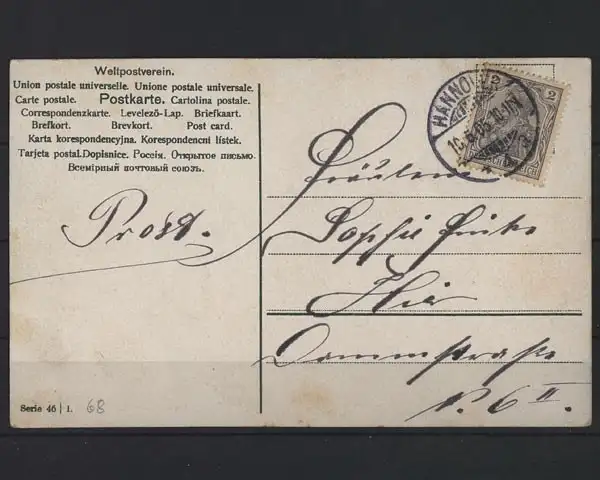 Weltpostverein.
Union postale universelle. Unione postale universale.
Carte postale. Postkarte. Cartolina postale.
Correspondenzkarte. Levelező-Lap. Briefkaart.
Brefkort. Brevkort. Post card.
Karta korespondencyjna. Korespondencní lístek.
Tarjeta postal. Dopisnice. Россія. Открытое письмо.
Всемірный почтовый союзъ.
Prost.
Fräulein
Sophie
Hier
N. 6 II.
Serie 46 | 1. 68
HANNOVER
2